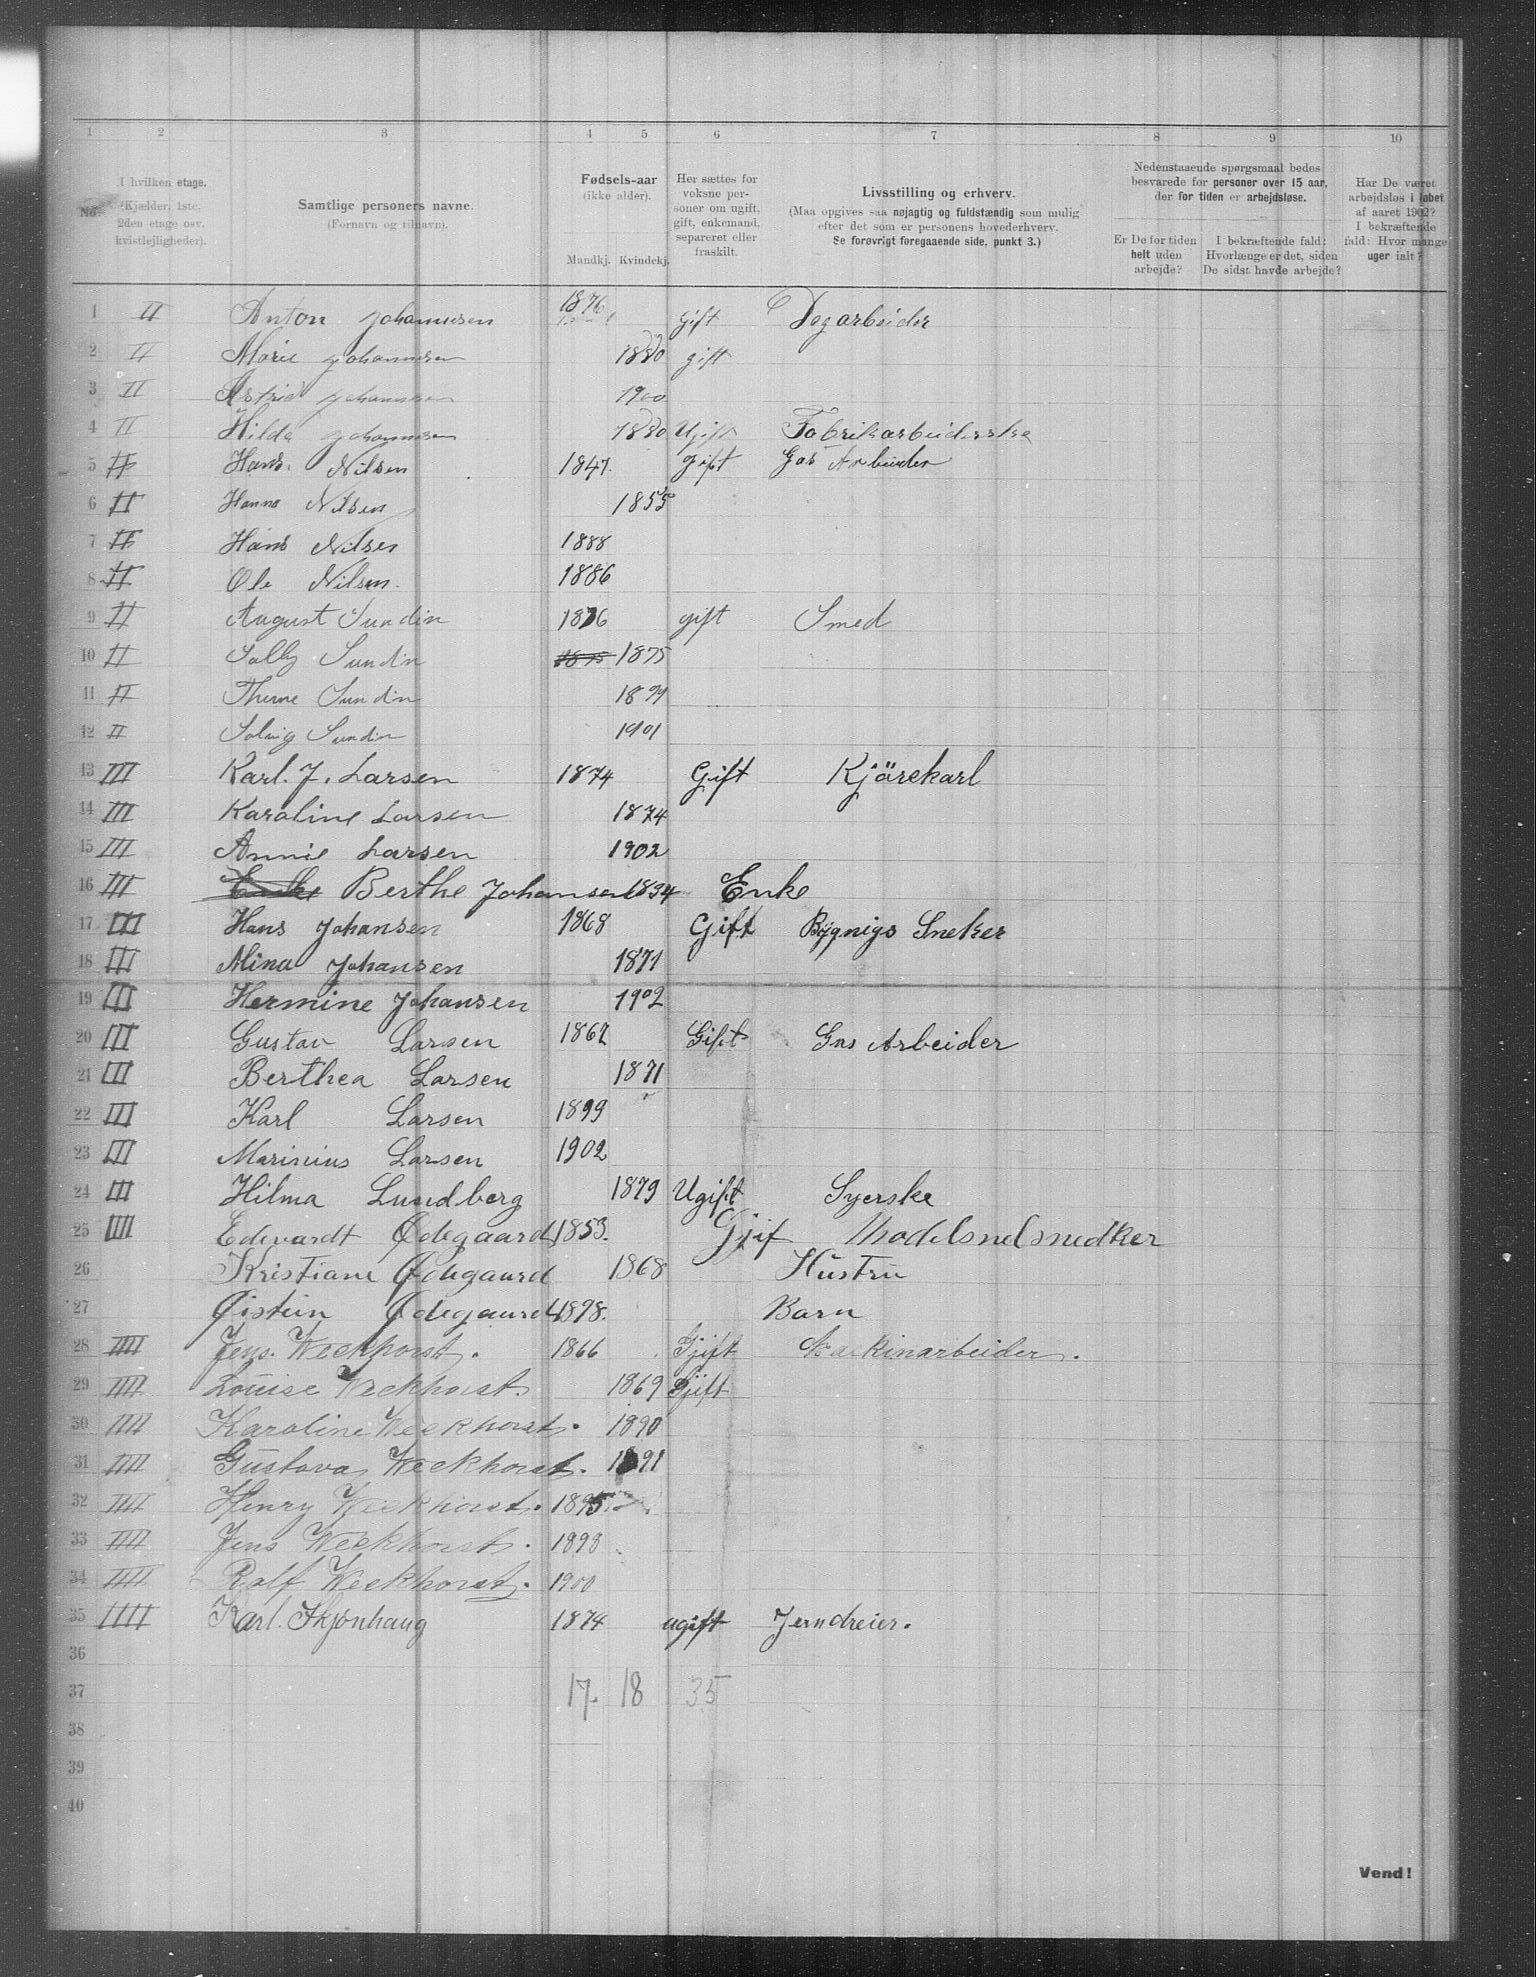 1 2 3 4 5 6 7 8 9 10
No. I hvilken etage. (Kjælder, 1ste, 2den etage osv. kvistlejligheder). Samtlige personers navne. (Fornavn og tilnavn). Fødsels-aar (ikke alder). Mandkj. Kvindekj. Her sættes for voksne personer om ugift, gift, enkemand, separeret eller fraskilt. Livsstilling og erhverv. (Maa opgives saa nøjagtig og fuldstændig som mulig efter det som er personens hovederhverv. Se forøvrigt foregaaende side, punkt 3.) Nedenstaaende spørgsmaal bedes besvarede for personer over 15 aar, der for tiden er arbejdsløse. Er De for tiden helt uden arbejde? I bekræftende fald: Hvorlænge er det, siden De sidst havde arbejde? Har De været arbejdsløs i løbet af aaret 1902? I bekræftende fald: Hvor mange uger ialt?
1 II Anton Johannesen 1876 gift Dagarbeider
2 II Marie Johannesen 1880 gift
3 II Astrid Johannesen 1900
4 II Hilda Johannesen 1880 Ugift Fabrikarbeiderske
5 II Hans Nilsen 1847. gift Gas Arbeider
6 II Hanna Nilsen 1855
7 II Hans Nilsen 1888
8 II Ole Nilsen. 1886
9 II August Sundin 1876 gift Smed
10 II Sally Sundin 1875 1875
11 II Sundin 1899
12 II Solvig Sundin 1901
13 III Karl. J. Larsen 1874 Gift Kjörekarl
14 III Karoline Larsen 1874
15 III Annie Larsen 1902
16 III Enke Berthe Johansen 1834 Enke
17 III Hans Johansen 1868 Gift Bygnigs Sneker
18 III Mina Johansen 1871
19 III Hermine Johansen 1902
20 III Gustav Larsen 1867 Gift Gas Arbeider
21 III Berthea Larsen 1871
22 III Karl Larsen 1899
23 III Marinius Larsen 1902
24 III Hilma Lundberg 1879 Ugift Syerske
25 IIII Edevardt Ødegaard 1853. Gjif
26 Kristiane Ødegaard 1868 Hustru
27 Øistein Ødegaard 1898. Barn
28 IIII Jens. Weekhorst. 1866 Gjift
29 IIII Louise Weekhorst 1869 Gjift
30 IIII Karoline Weekhorst. 1890
31 IIII Gustava Weekhorst. 1891
32 IIII Henry Weekhorst. 1895
33 IIII Jens Weekhorst. 1898
34 IIII Rolf Weekhorst. 1900
35 IIII Karl. Skjönhaug 1874 ugift Jerndreier.
36
37 17. 18 35
38
39
40
Vend!